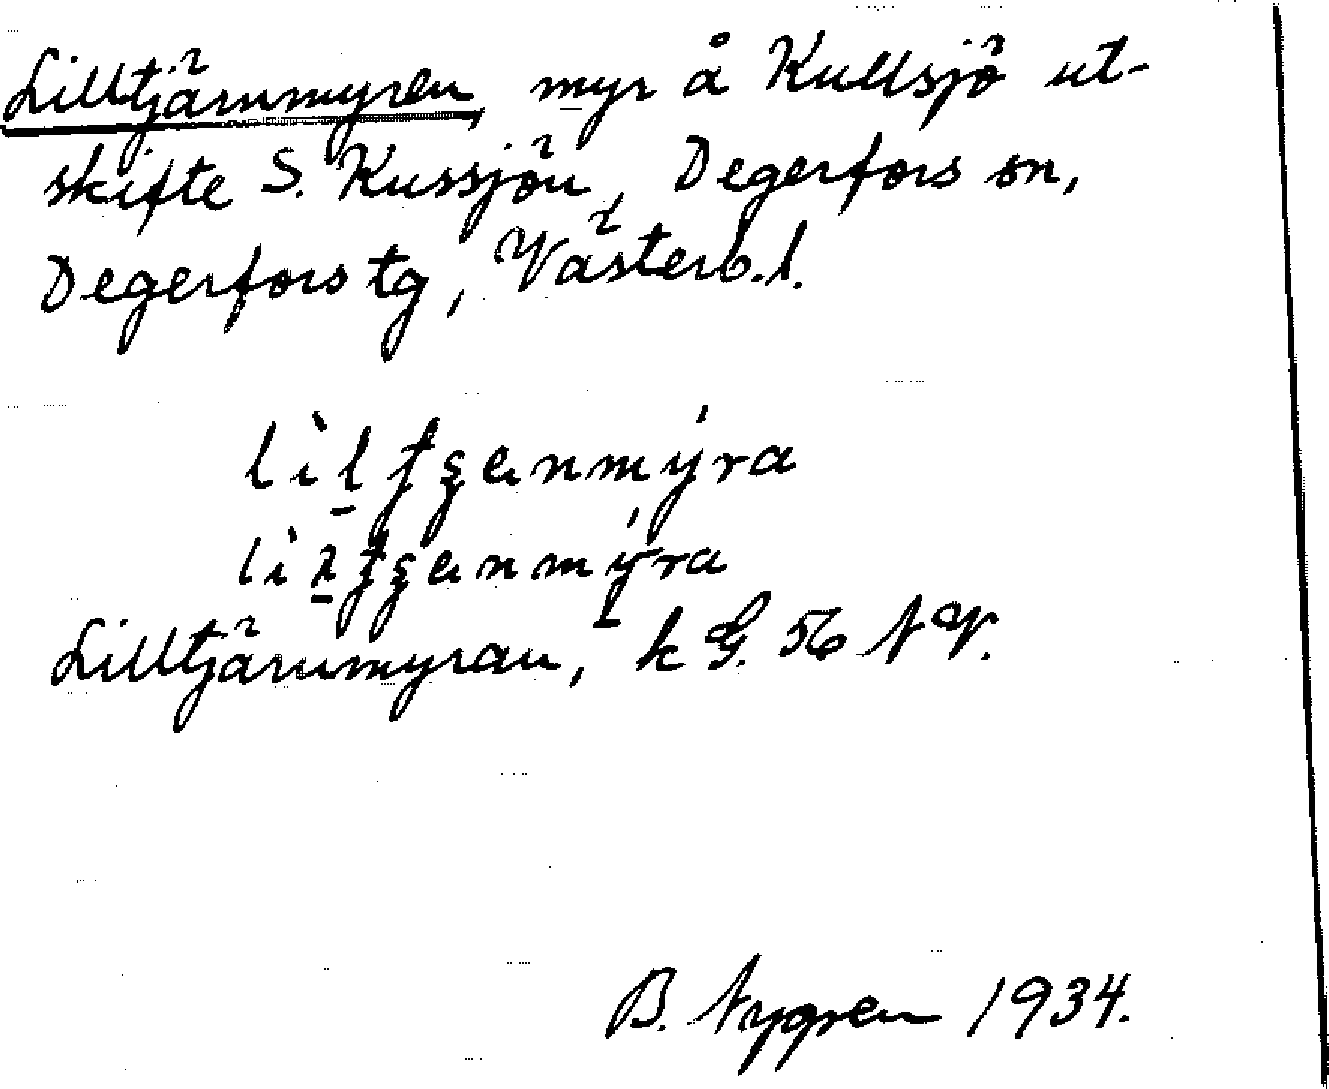 Lilltjärnmyren, myr å Kullsjö ut-
skifte S. Kussjön, Degerfors sn,
Degerfors tg, Västerb. l.
Lilltjärnmyran, k G. 56 NV.
B. Nygren 1934.